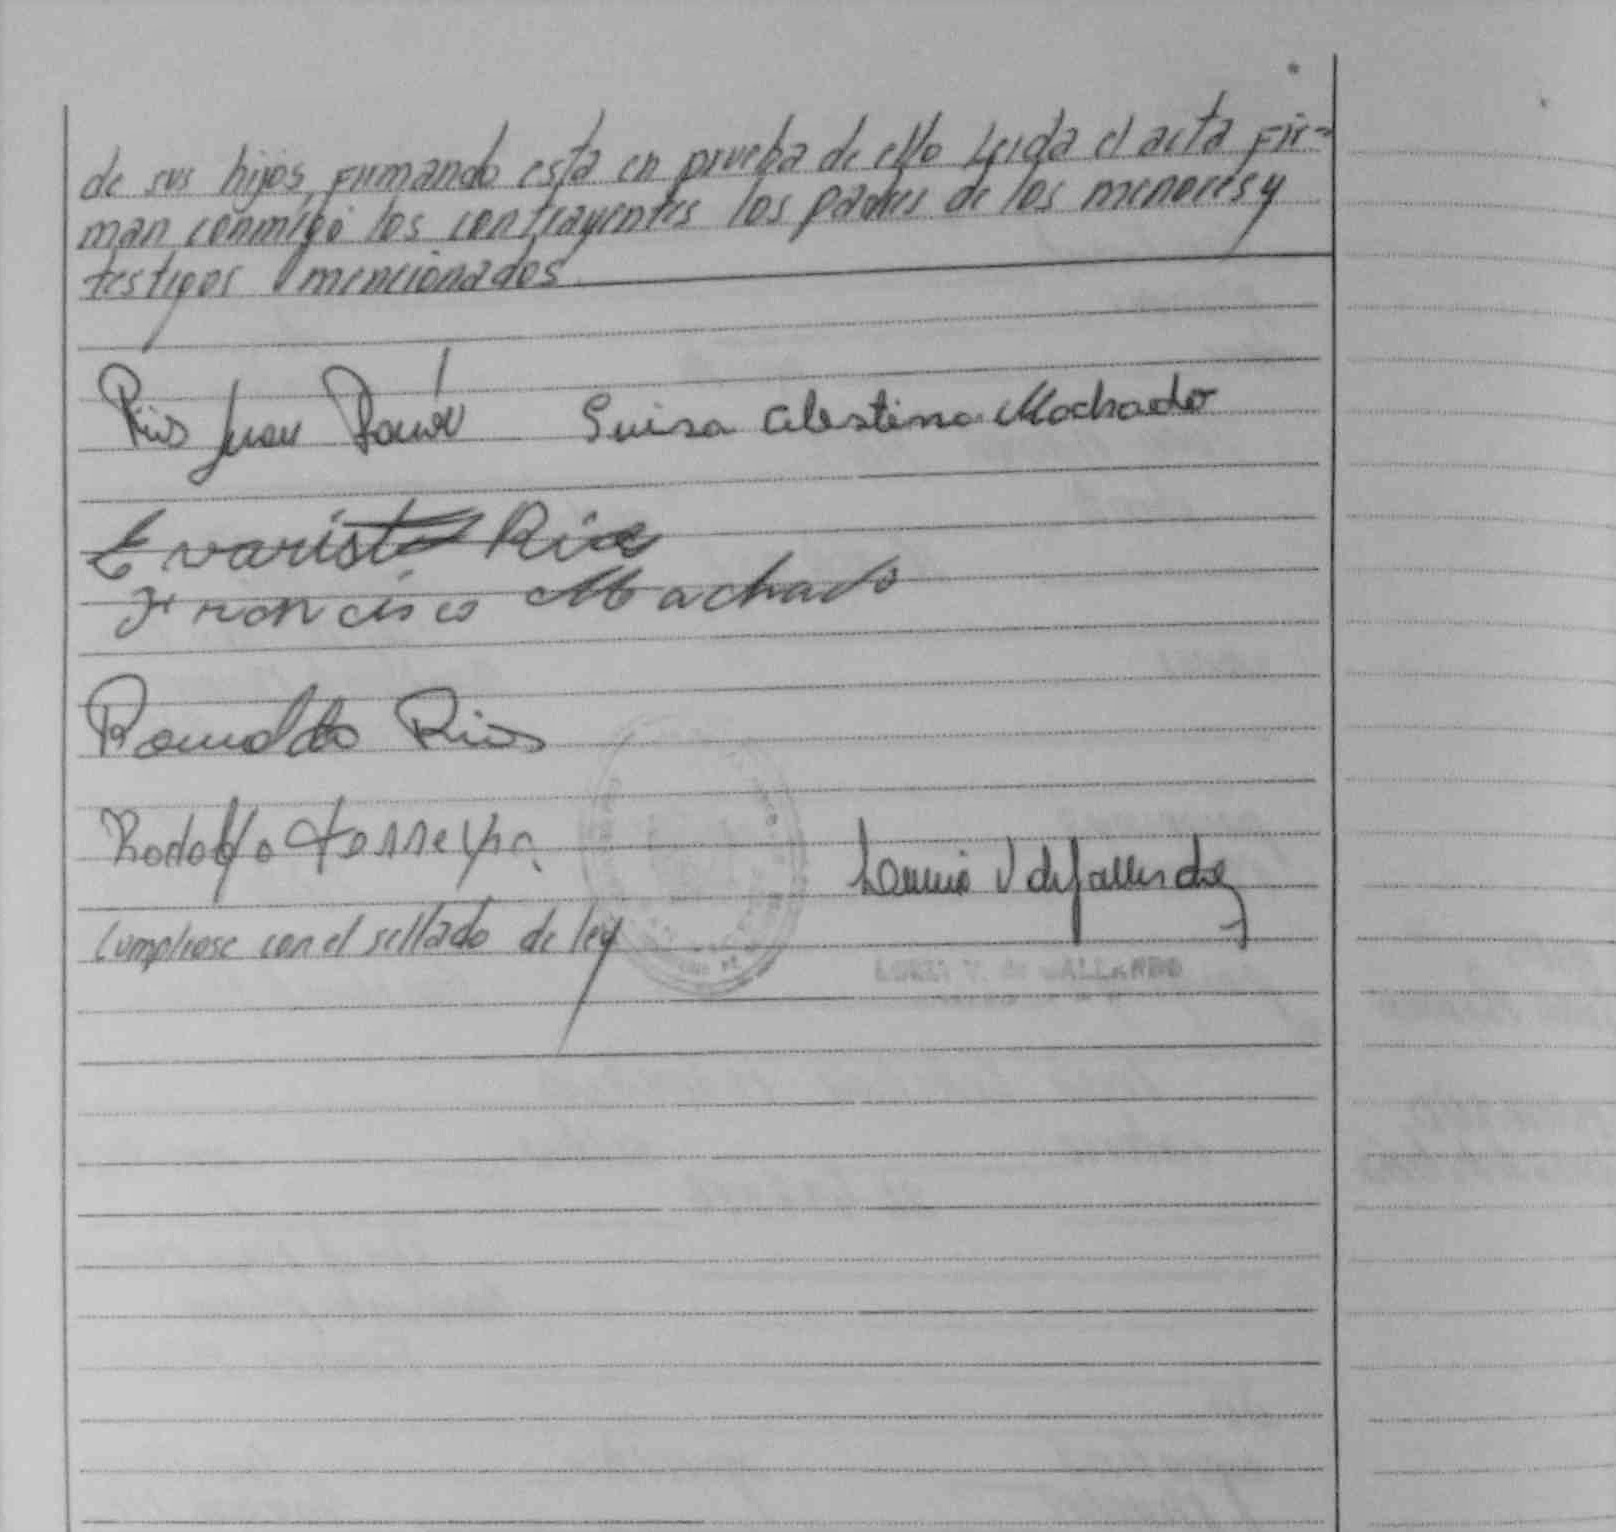 de sus hijos, firmando esta en prueba de ello Leida el acta Fir=
man conmigo los contrayentes los padres de los menores y
testigos mencionados
Rios Juan Ramón Luisa Celestina Machado
Evaristo Rios
Francisco Machado
Romualdo Rios
Rodolfo Ferreyra.
V de Gallardo
Cumplease con el sellado de ley
V. de GALLARDO